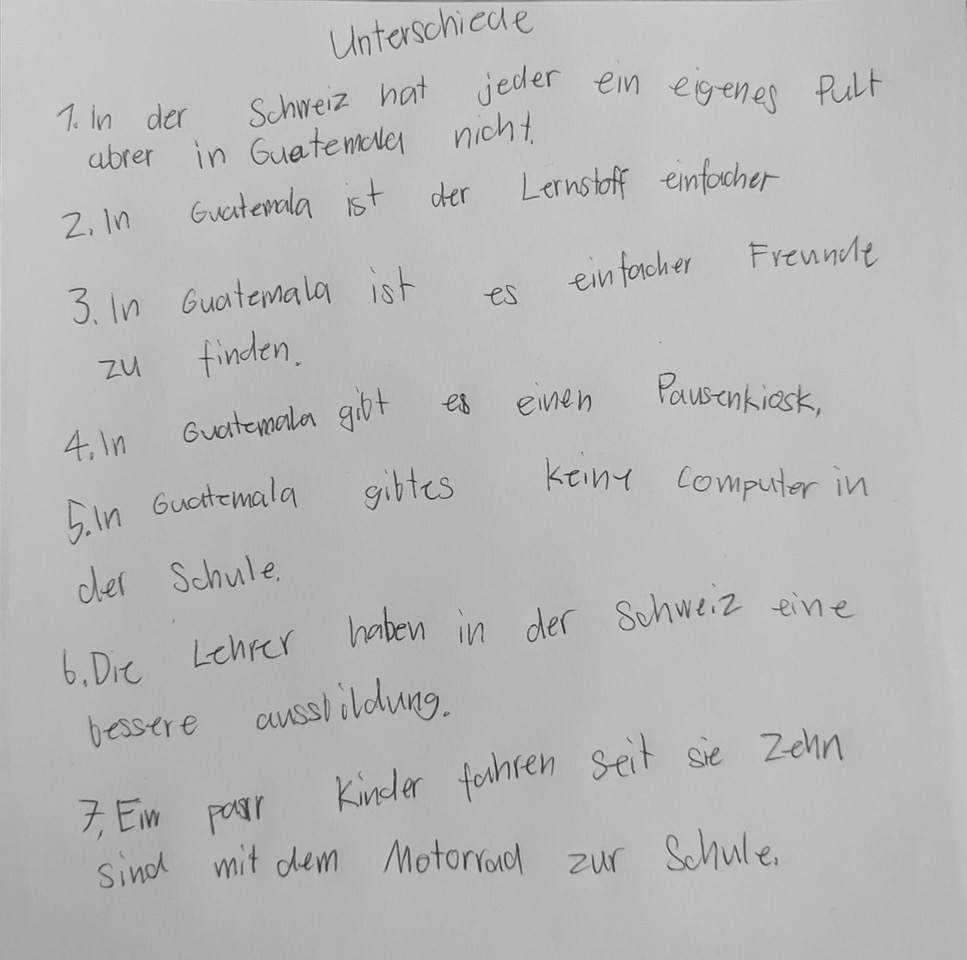 Unterschiede
1. In der Schweiz hat jeder ein eigenes Pult
abrer in Guatemala nicht.
2. In Guatemala ist der Lernstoff einfacher
3. In Guatemala ist es einfacher Freunde
zu finden.
4. In Guatemala gibt es einen Pausenkiosk,
5. In Guatemala gibtes keine Computer in
der Schule.
6. Die Lehrer haben in der Schweiz eine
bessere aussbildung.
7, Ein paar Kinder fahren seit sie Zehn
sind mit dem Motorrad zur Schule.